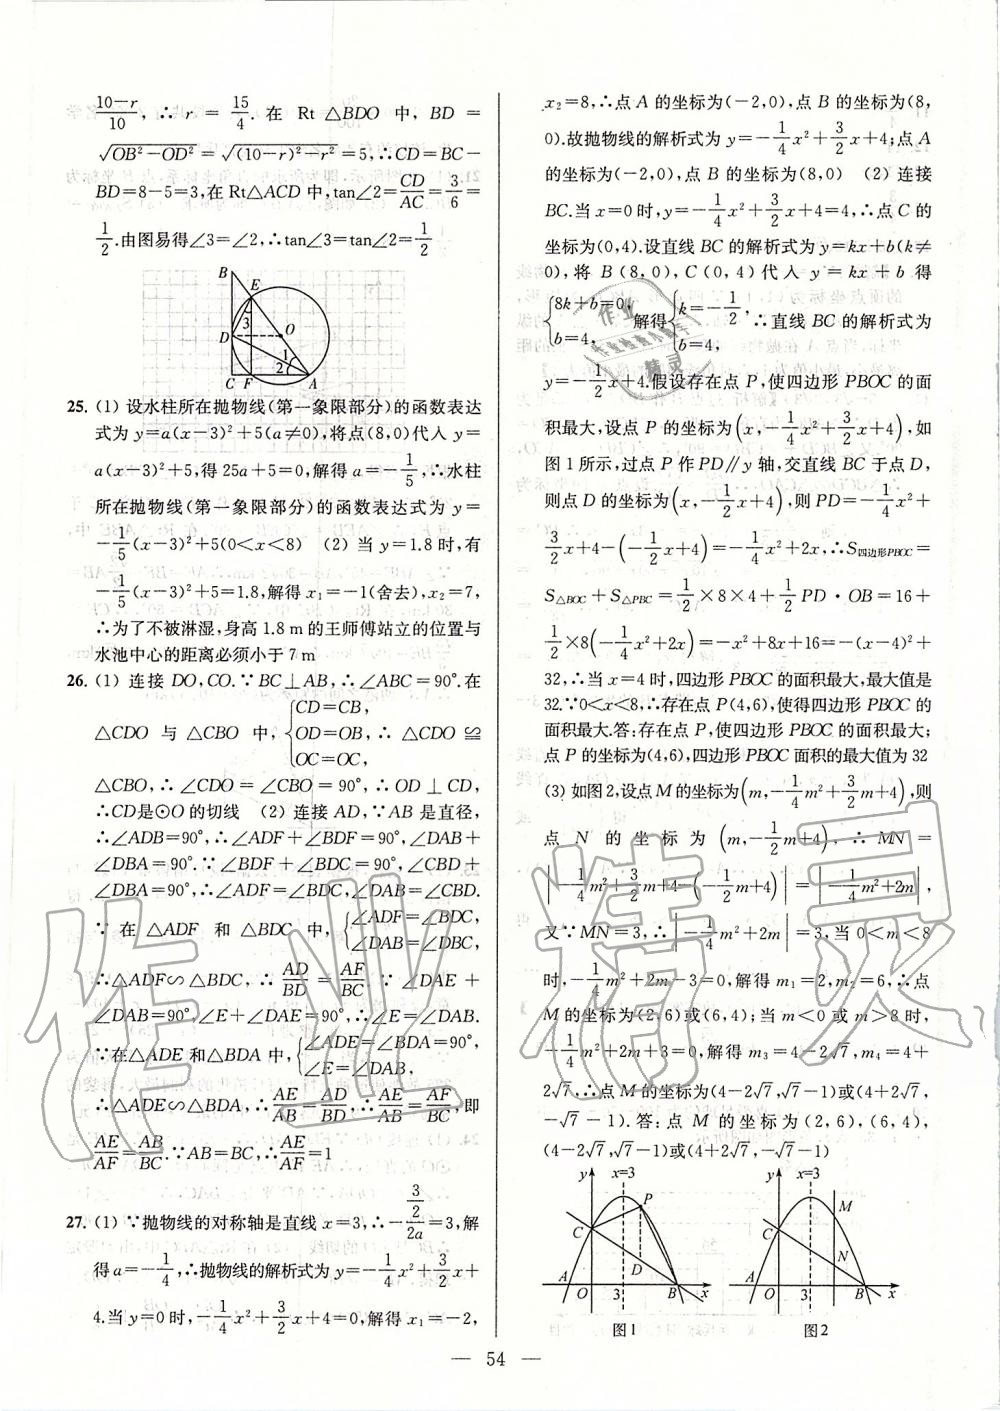 $\frac{10-r}{10}$,∴r=$\frac{15}{4}$.在 Rt△BDO 中,BD=
$\sqrt{OB^2-OD^2}=\sqrt{(10-r)^2-r^2}$=5,∴CD=BC-
BD=8-5=3,在Rt△ACD中,tan∠2=$\frac{CD}{AC}=\frac{3}{6}$=
$\frac{1}{2}$.由图易得∠3=∠2,∴tan∠3=tan∠2=$\frac{1}{2}$
B
E
3
D
O
1
2
C F A
25.(1) 设水柱所在抛物线(第一象限部分)的函数表达
式为y=a(x-3)²+5(a≠0),将点(8,0)代入y=
a(x-3)²+5,得25a+5=0,解得a=-$\frac{1}{5}$,∴水柱
所在抛物线(第一象限部分)的函数表达式为y=
-$\frac{1}{5}$(x-3)²+5(0<x<8) (2) 当y=1.8时,有
-$\frac{1}{5}$(x-3)²+5=1.8,解得x₁=-1(舍去),x₂=7,
∴为了不被淋湿,身高1.8 m的王师傅站立的位置与
水池中心的距离必须小于7 m
26.(1) 连接DO,CO.∵BC⊥AB,∴∠ABC=90°.在
△CDO 与 △CBO 中,$\begin{cases}CD=CB,\\OD=OB,\\OC=OC,\end{cases}$∴△CDO≌
△CBO,∴∠CDO=∠CBO=90°,∴OD⊥CD,
∴CD是⊙O的切线 (2) 连接AD,∵AB是直径,
∴∠ADB=90°,∴∠ADF+∠BDF=90°,∠DAB+
∠DBA=90°.∵∠BDF+∠BDC=90°,∠CBD+
∠DBA=90°,∴∠ADF=∠BDC,∠DAB=∠CBD.
∵在△ADF 和△BDC 中,$\begin{cases}∠ADF=∠BDC,\\∠DAB=∠DBC,\end{cases}$
∴△ADF∽△BDC,∴$\frac{AD}{BD}=\frac{AF}{BC}$.∵∠DAE+
∠DAB=90°,∠E+∠DAE=90°,∴∠E=∠DAB.
∵在△ADE和△BDA中,$\begin{cases}∠ADE=∠BDA=90°,\\∠E=∠DAB,\end{cases}$
∴△ADE∽△BDA,∴$\frac{AE}{AB}=\frac{AD}{BD}$,∴$\frac{AE}{AB}=\frac{AF}{BC}$,即
$\frac{AE}{AF}=\frac{AB}{BC}$.∵AB=BC,∴$\frac{AE}{AF}$=1
27.(1) ∵抛物线的对称轴是直线x=3,∴-$\frac{\frac{3}{2}}{2a}$=3,解
得a=-$\frac{1}{4}$,∴抛物线的解析式为y=-$\frac{1}{4}$x²+$\frac{3}{2}$x+
4.当y=0时,-$\frac{1}{4}$x²+$\frac{3}{2}$x+4=0,解得x₁=-2,
x₂=8,∴点A的坐标为(-2,0),点B的坐标为(8,
0).故抛物线的解析式为y=-$\frac{1}{4}$x²+$\frac{3}{2}$x+4;点A
的坐标为(-2,0),点B的坐标为(8,0) (2) 连接
BC.当x=0时,y=-$\frac{1}{4}$x²+$\frac{3}{2}$x+4=4,∴点C的
坐标为(0,4).设直线BC的解析式为y=kx+b(k≠
0),将B(8,0),C(0,4)代入y=kx+b得
$\begin{cases}8k+b=0,\\b=4,\end{cases}$解得$\begin{cases}k=-\frac{1}{2},\\b=4,\end{cases}$∴直线BC的解析式为
y=-$\frac{1}{2}$x+4.假设存在点P,使四边形PBOC的面
积最大,设点P的坐标为$\left(x,-\frac{1}{4}x^2+\frac{3}{2}x+4\right)$,如
图1所示,过点P作PD∥y轴,交直线BC于点D,
则点D的坐标为$\left(x,-\frac{1}{2}x+4\right)$,则PD=-$\frac{1}{4}$x²+
$\frac{3}{2}$x+4-$\left(-\frac{1}{2}x+4\right)$=-$\frac{1}{4}$x²+2x,∴S四边形PBOC=
S△BOC+S△PBC=$\frac{1}{2}$×8×4+$\frac{1}{2}$PD·OB=16+
$\frac{1}{2}$×8$\left(-\frac{1}{4}x^2+2x\right)$=-x²+8x+16=-(x-4)²+
32,∴当x=4时,四边形PBOC的面积最大,最大值是
32.∵0<x<8,∴存在点P(4,6),使得四边形PBOC的
面积最大.答:存在点P,使四边形PBOC的面积最大;
点P的坐标为(4,6),四边形PBOC面积的最大值为32
(3) 如图2,设点M的坐标为$\left(m,-\frac{1}{4}m^2+\frac{3}{2}m+4\right)$,则
点N的坐标为$\left(m,-\frac{1}{2}m+4\right)$,∴MN=
$\left|-\frac{1}{4}m^2+\frac{3}{2}m+4-\left(-\frac{1}{2}m+4\right)\right|=\left|-\frac{1}{4}m^2+2m\right|$,
又∵MN=3,∴$\left|-\frac{1}{4}m^2+2m\right|$=3,当0<m<8
时,-$\frac{1}{4}$m²+2m-3=0,解得m₁=2,m₂=6,∴点
M的坐标为(2,6)或(6,4);当m<0或m>8时,
-$\frac{1}{4}$m²+2m+3=0,解得m₃=4-2√7,m₄=4+
2√7,∴点M的坐标为(4-2√7,√7-1)或(4+2√7,
-√7-1).答:点M的坐标为(2,6),(6,4),
(4-2√7,√7-1)或(4+2√7,-√7-1)
y x=3
P
C
D
A O 3 B x
图1
y x=3
M
C
N
A O 3 B x
图2
— 54 —
作业精灵
作业
精灵